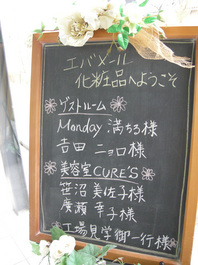 エバメール
化粧品へようこそ
ゲストルーム
Manday 満ちる様
吉田 ニョロ様
美容室CURE'S
笹沼 美佐子様
廣瀬 幸子様
工場見学御一行様